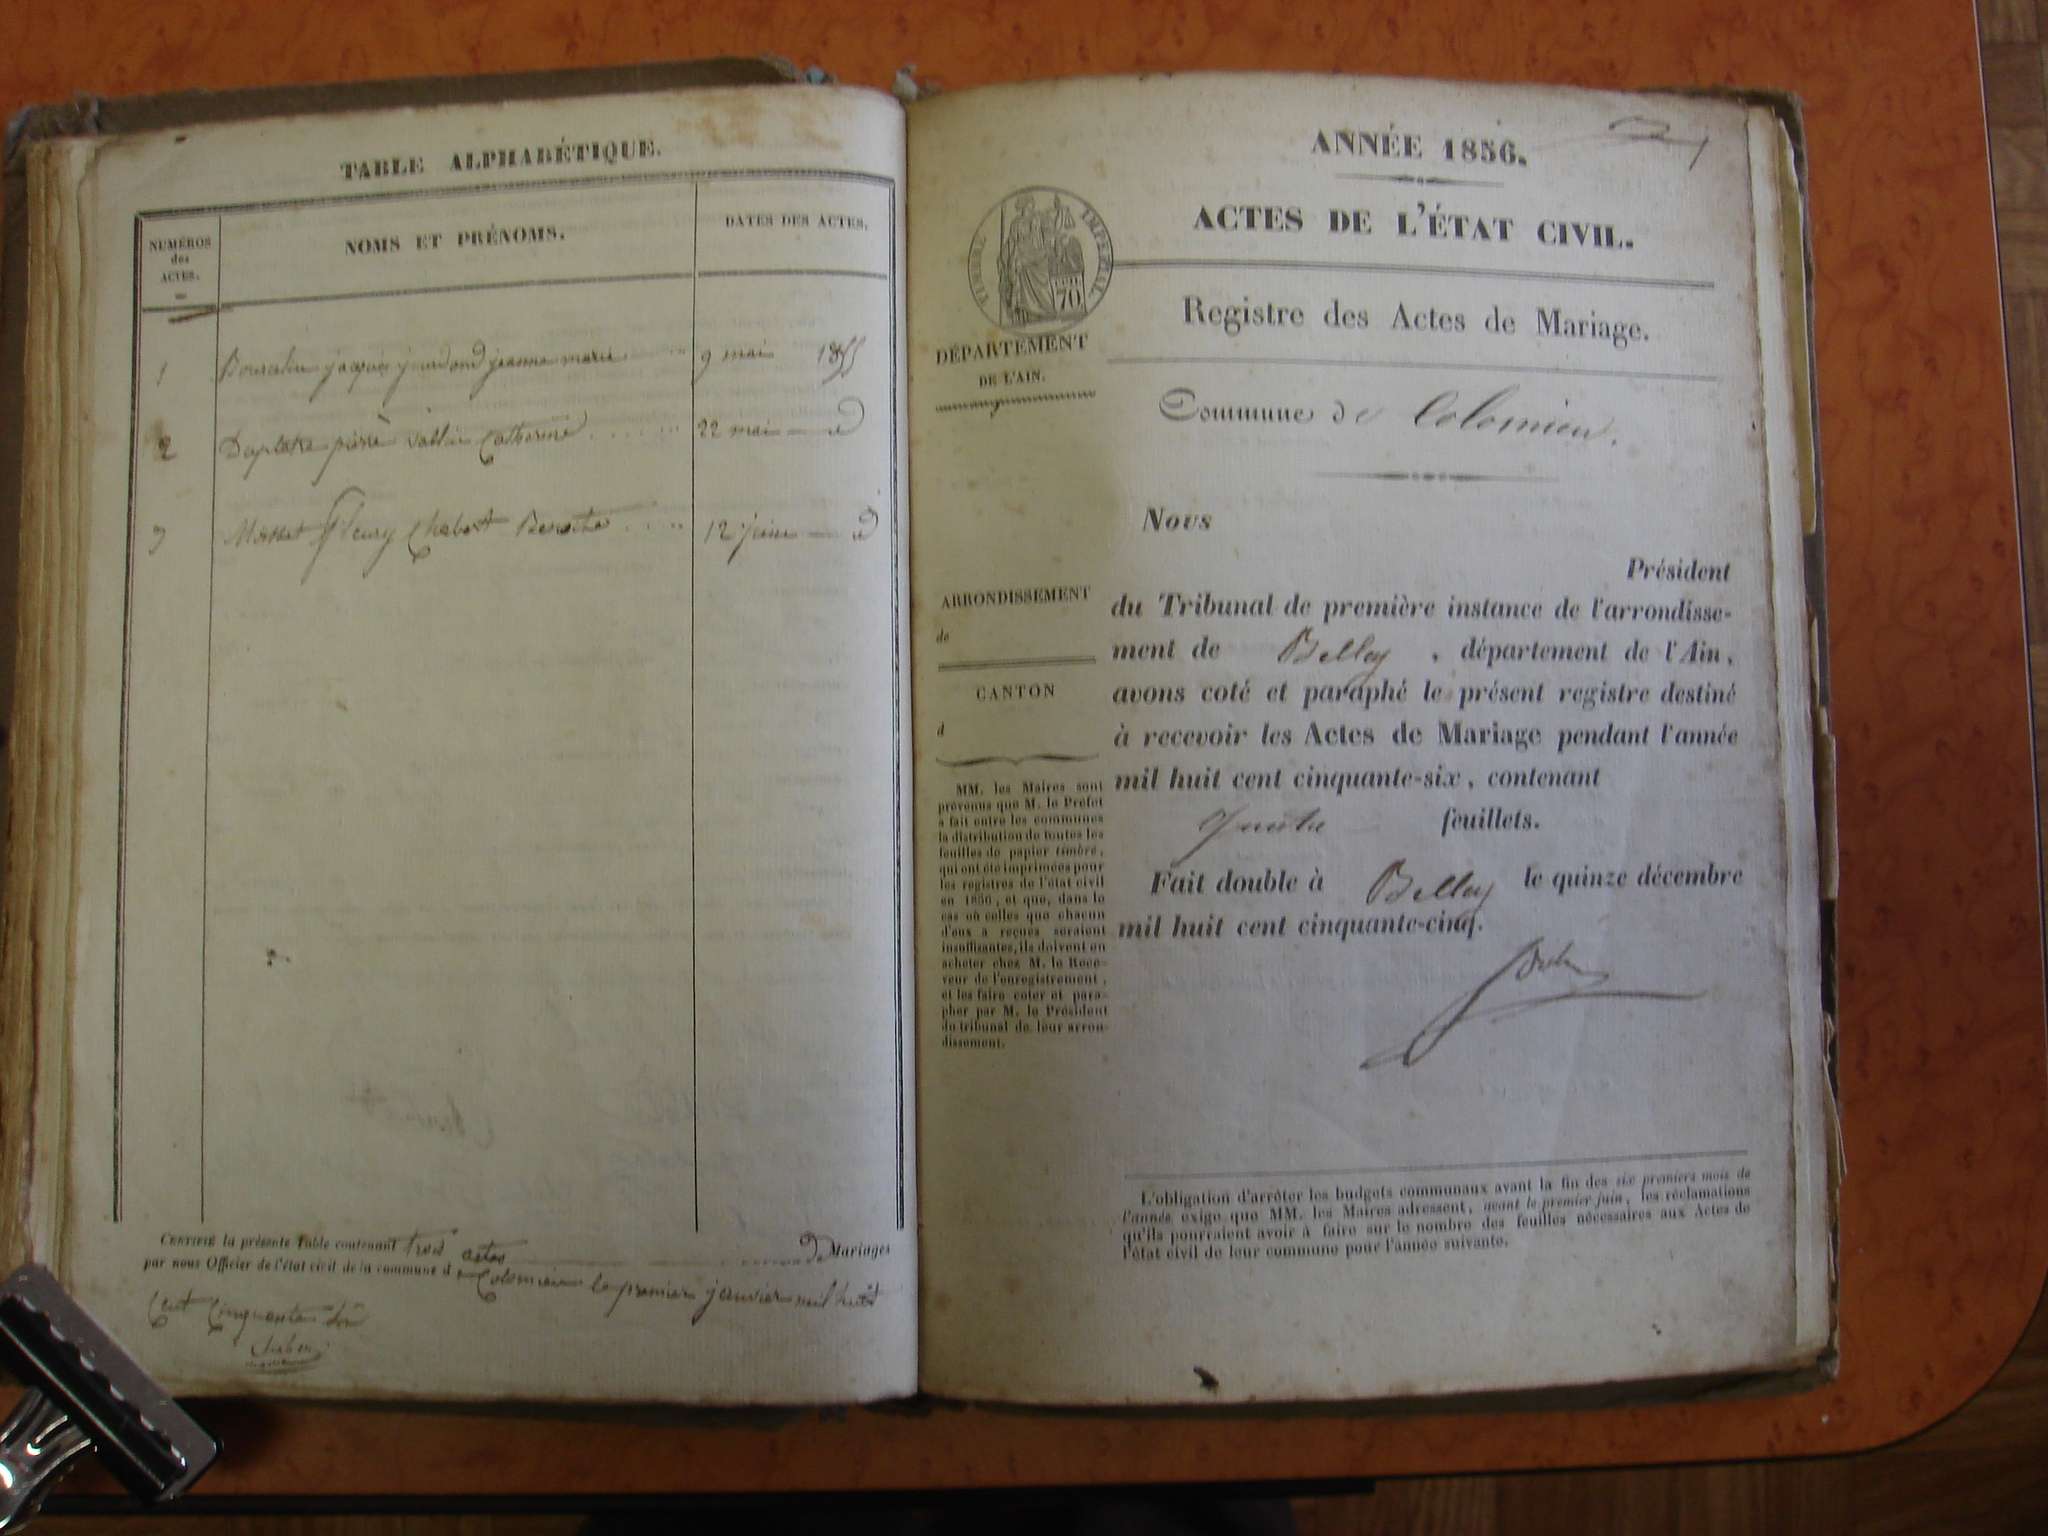 TABLE ALPHABÉTIQUE.
NUMÉROS
des
ACTES.
NOMS ET PRÉNOMS.
DATES DES ACTES.
1 jacques jeanne marie 9 mai 1855
2 pierre Vallin Catherine 22 mai d
3 Fleury Chabert 12 juin d
CERTIFIÉ la présente Table contenant trois actes de Mariages
par nous Officier de l'état civil de la commune d Colomieu le premier janvier mil huit
Cent Cinquante
ANNÉE 1856.
ACTES DE L'ÉTAT CIVIL.
TIMBRE IMPERIAL
70
Registre des Actes de Mariage.
DÉPARTEMENT
DE L'AIN.
Commune de Colomieu.
Nous
Président
du Tribunal de première instance de l'arrondisse-
ment de Belley, département de l'Ain,
avons coté et paraphé le présent registre destiné
à recevoir les Actes de Mariage pendant l'année
mil huit cent cinquante-six, contenant
Quatre feuillets.
Fait double à Belley le quinze décembre
mil huit cent cinquante-cinq.
ARRONDISSEMENT
de
CANTON
d
MM. les Maires sont
prévenus que M. le Préfet
a fait entre les communes
la distribution de toutes les
feuilles de papier timbré,
qui ont été imprimées pour
les registres de l'état civil
en 1856, et que, dans le
cas où celles que chacun
d'eux a reçues seraient
insuffisantes, ils doivent en
acheter chez M. le Rece-
veur de l'enregistrement,
et les faire coter et para-
pher par M. le Président
du tribunal de leur arron-
dissement.
L'obligation d'arrêter les budgets communaux avant la fin des six premiers mois de
l'année exige que MM. les Maires adressent, avant le premier juin, les réclamations
qu'ils pourraient avoir à faire sur le nombre des feuilles nécessaires aux Actes de
l'état civil de leur commune pour l'année suivante.